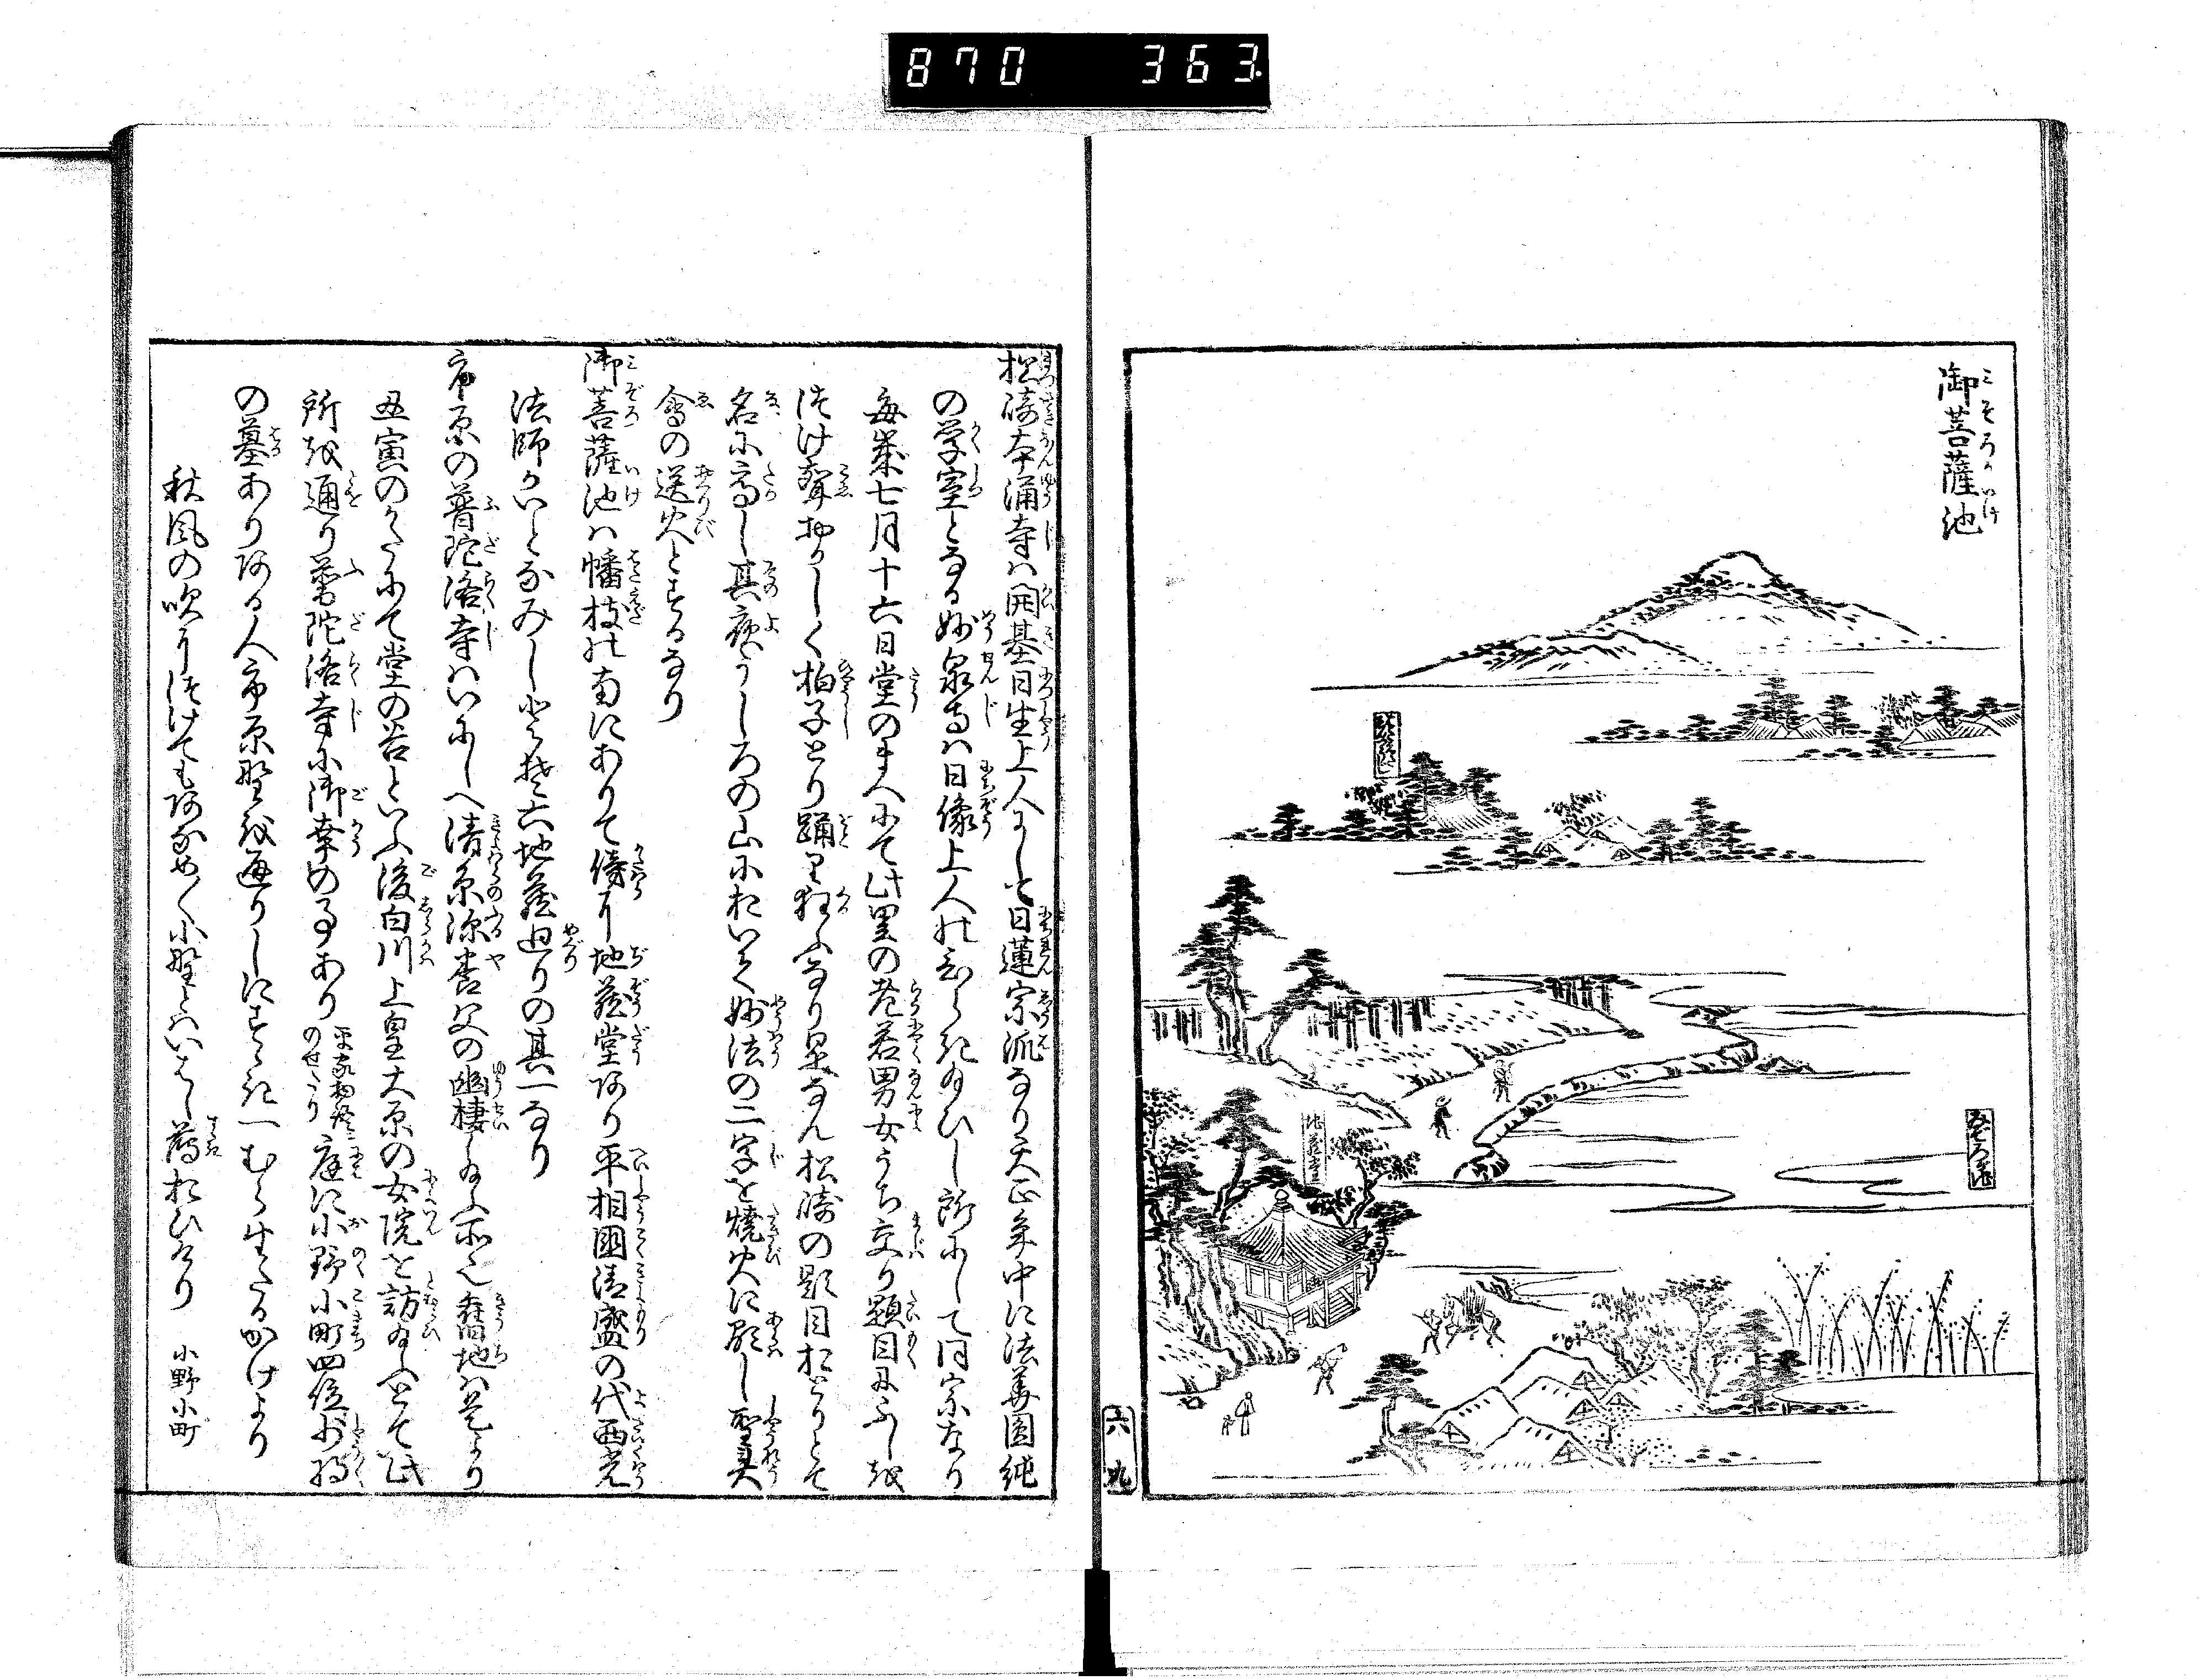 870 363
御菩薩池
みぞろいけ
地蔵堂
みぞろ池
六 九
松崎本涌寺は開基日生上人にして日蓮宗派なり天正年中に法華円純
の学室となる妙泉寺は日像上人のひらき給ひし所にして同宗なり
毎歳七月十六日堂のまへにて此里の老若男女うち交り題目にふしを
つけ声おかしく拍子とり踊り狂ふなり是なん松崎の題目おどりとて
名に高し其夜うしろの山において妙法の二字を焼火に顕し聖霊
会の送火とするなり
御菩薩池は幡枝の南にありて傍に地蔵堂あり平相国清盛の代西光
法師がいとなみし とぞ六地蔵廻りの其一なり
市原の普陀洛寺はいにしへ清原深養父の幽棲し給ふ所也旧地は是より
丑寅のかたにて堂の谷といふ後白川上皇大原の女院を訪給ふとて此
所を通り普陀洛寺に御幸の事あり
平家物語に
のせたり
庭に小野小町四位少将
の墓ありある人市原野を通りしにすゝき一むら生たるかげより
秋風の吹につけてもあなめ〳〵小野とはいはじ薄おひけり 小野小町